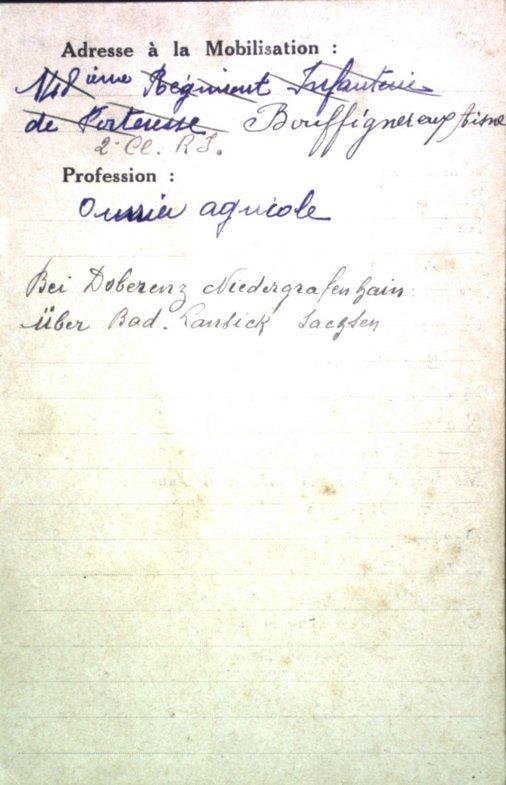 Adresse à la Mobilisation :
148 ième Régiment Infanterie
de Forteresse Bouffignereux Aisne
2e Cl. R I.
Profession :
Ouvrier agricole
Bei Doberenz Niedergrafenhain
Über Bad. Lausick Sachsen